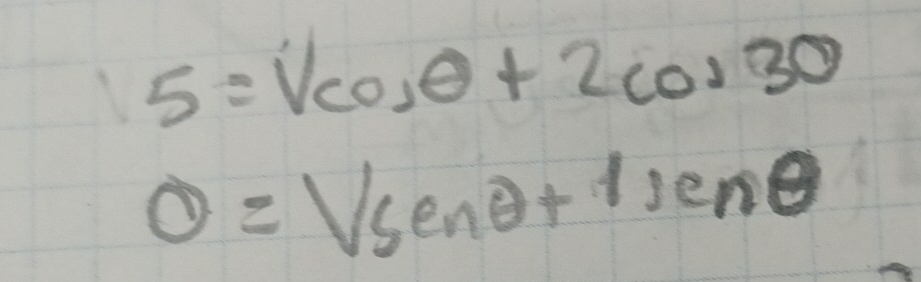 5 = Vcosθ + 2cos30
0 = Vsenθ + 1senθ